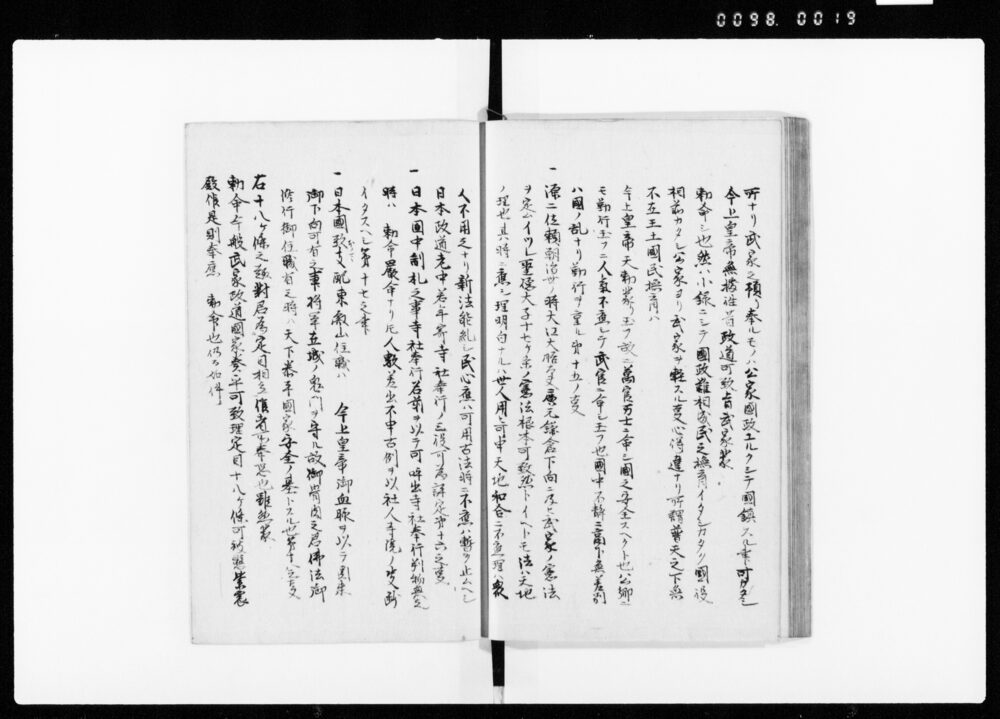 0098.0019
所ナリ武家之預リ奉ルモノハ公家國政ユルクシテ國鎮スル事可カタシ
今上皇帝無據往昔政道可致旨武家蒙
勅命シ也然ハ小録ニシテ國政難相成民之撫育イタシカタク國役
相勤カタシ公家ヨリ武家ヲ軽スル事心得違ナリ所謂普天之下無
不在王土國民撫育ハ
今上皇帝天勅蒙リ玉フ故ニ萬官万士ニ命シ國之安全スヘクト也公卿ニ
モ勤行玉フニ人氣不應シテ武官ニ命シ玉フ也國中不静ニ高下無差別
ハ國ノ乱ナリ勤行ヲ重ル第十五ノ支
一 源二位頼朝治世ノ時大江大膳大夫廣元鎌倉下向ニ及ヒ武家ノ憲法
ヲ定ムイツレ聖徳大子十七ケ条ノ憲法根本可致然トイヘトモ法ハ天地
ノ理也其時ニ應シ理明白ナルハ世人用之可申天地和合ニ不應理ハ衆
人不用之ナリ新法能糺シ民心應ハ可用古法時ニ不應ハ暫ヲ止ムヘシ
日本政道老中若年寄寺社奉行ノ三役可為評定第十六之支
一 日本國中制札之事寺社奉行若葉ヲ以テ可 出寺社奉行別物無之
時ハ 勅命嚴命ナリ元人數差出不申古例ヲ以社人寺院ノ支
イタスヘシ第十七之支
一 日本國政支配東叡山住職ハ 今上皇帝御血脉ヲ以テ関東
御下向可有之事将軍立城ノ鬼門ヲ守ル故御骨肉之君佛法御
修行御住職有之時ハ天下泰平國家安全ノ基トスル也第十八之支
右十八ケ條之趣對君為定目相立後者可奉思也雖然蒙
勅命今般武家政道國家泰平可致理定目十八ケ條可被懸紫宸
殿候是則奉應 勅命也仍而如件